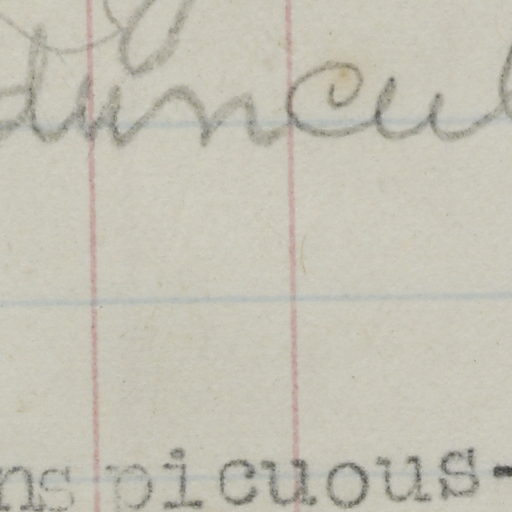 duncul
nspicuous-